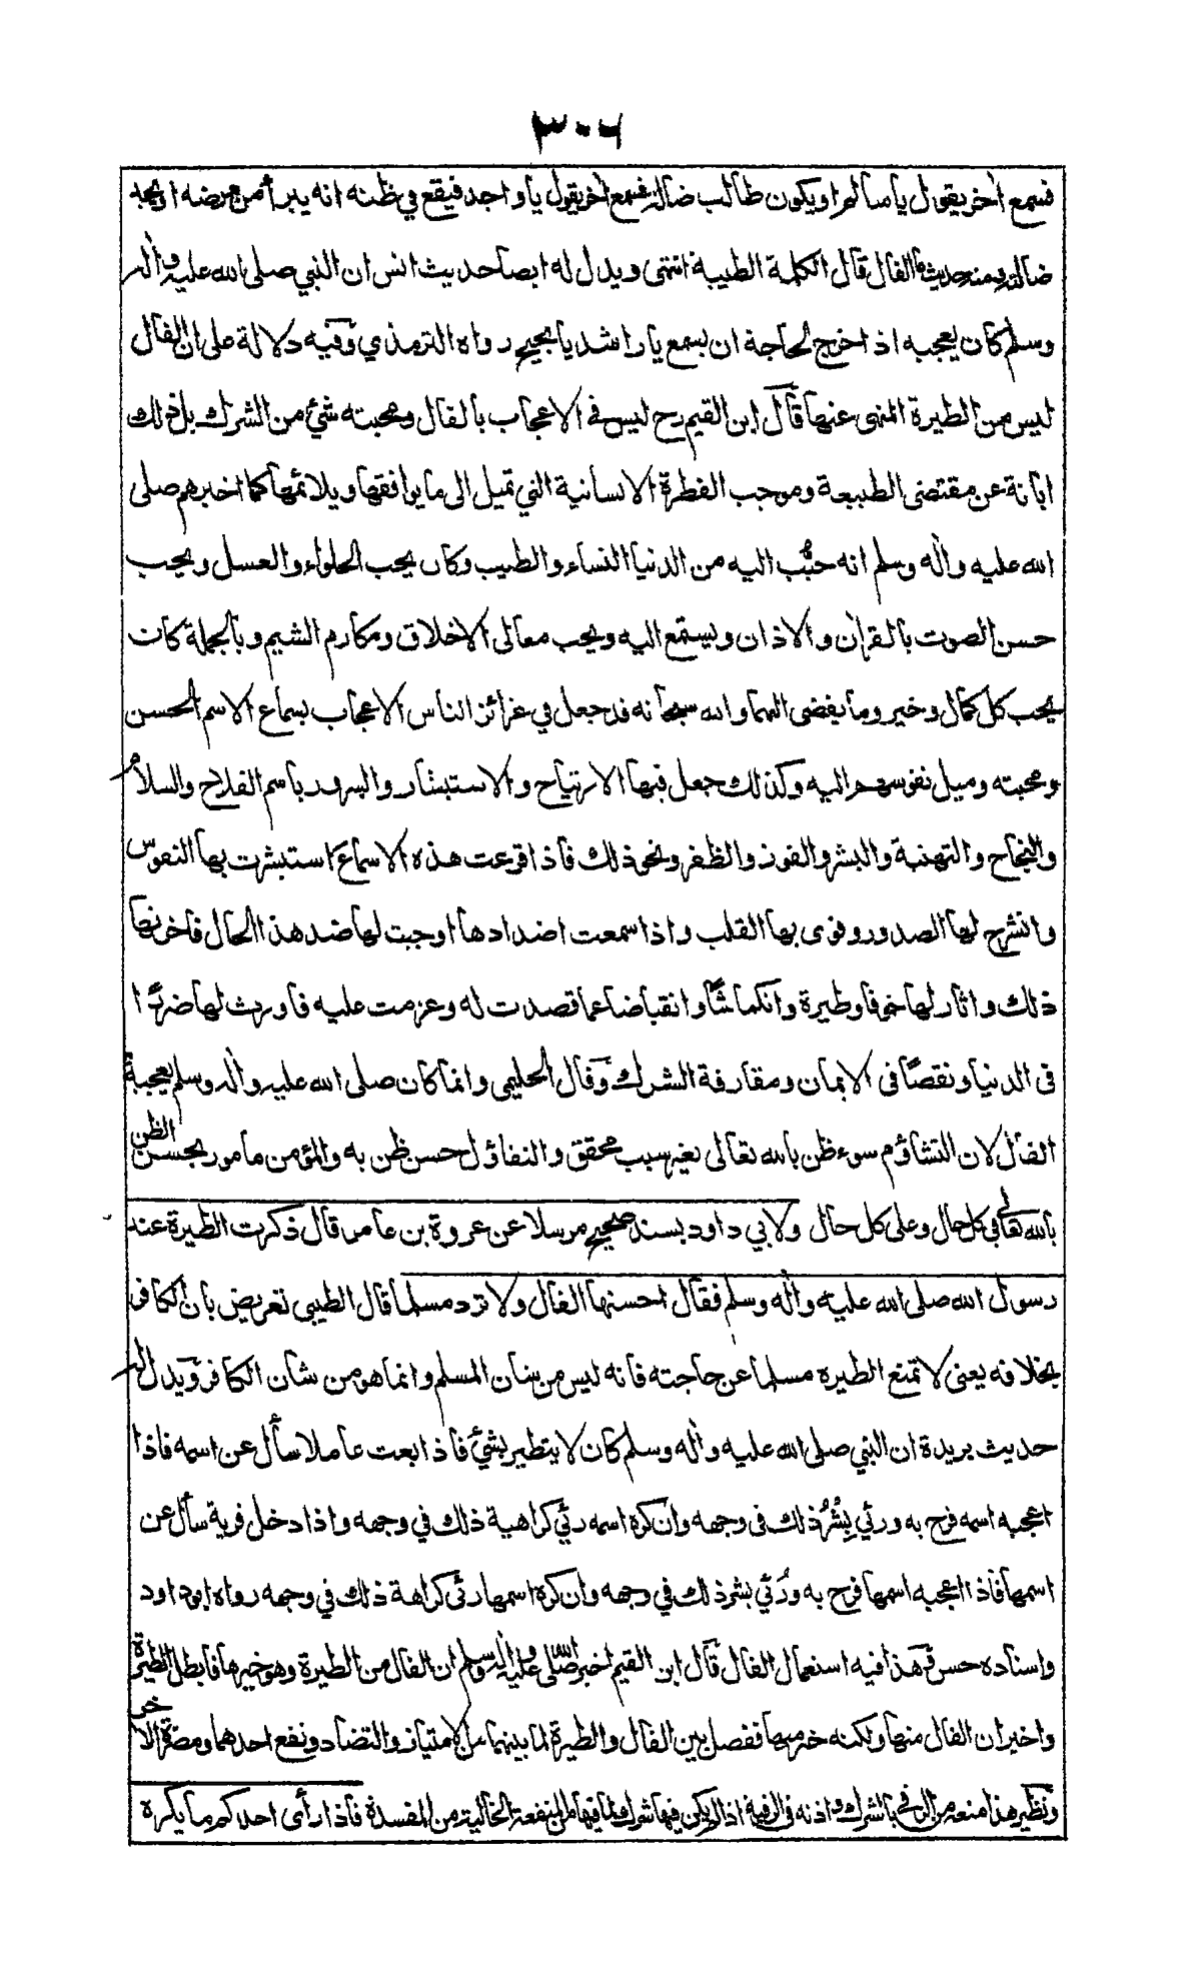 ٣٠٦
فسمع اخر يقول يا سالم او يكون طالب ضالة فسمع اخر يقول يا واجد فيقع في ظنه انه يبرأ من مرضه او يجد
ضالته ومنه حديث ما الفال قال الكلمة الطيبة انتهى ويدل له ايضا حديث انس ان النبي صلى الله عليه واٰله
وسلم كان يعجبه اذا خرج لحاجة ان يسمع يا راشد يا نجيح رواه الترمذي وفيه دلالة على ان الفال
ليس من الطيرة المنهى عنها قال ابن القيم رح ليس في الاعجاب بالفال ومحبته شيء من الشرك بل ذلك
ابانة عن مقتضى الطبيعة وموجب الفطرة الانسانية التي تميل الى ما يوافقها ويلائمها كما اخبرهم صلى
الله عليه واٰله وسلم انه حبب اليه من الدنيا النساء والطيب وكان يحب الحلواء والعسل ويحب
حسن الصوت بالقراٰن والاذان ويستمع اليه ويحب معالى الاخلاق ومكارم الشيم وبالجملة كان
يحب كل كمال وخير وما يفضى اليهما والله سبحانه قد جعل في غرائز الناس الاعجاب بسماع الاسم الحسن
ومحبته وميل نفوسهم اليه وكذلك جعل فيها الارتياح والاستبشار والسرور باسم الفلاح والسلام
والنجاح والتهنية والبشر والفوز والظفر ونحو ذلك فاذا قرعت هذه الاسماء الاسماع استبشرت بها النفوس
وانشرح لها الصدور وقوى بها القلب واذا سمعت اضدادها اوجبت لها ضد هذا الحال فاحزنها
ذلك واثار لها خوفا وطيرة وانكماشًا وانقباضا عما قصدت له وعزمت عليه فاورث لها ضررًا
فى الدنيا ونقصًا فى الايمان ومقارفة الشرك وقال الحليمى وانما كان صلى الله عليه واٰله وسلم يعجبه
الفال لان التشاؤم سوء ظن بالله تعالى بغير سبب محقق والتفاؤل حسن ظن به والمؤمن مامور بحسن الظن
بالله تعالى في كل حال وعلى كل حال ولابي داود بسند صحيح مرسلا عن عروة بن عامر قال ذكرت الطيرة عند
رسول الله صلى الله عليه واٰله وسلم فقال احسنها الفال ولا ترد مسلما قال الطيبى تعريض بان الكافر
بخلافه يعنى لا تمنع الطيره مسلما عن حاجته فانه ليس من شان المسلم وانما هو من شان الكافر ويدل له
حديث بريدة ان النبي صلى الله عليه واٰله وسلم كان لا يتطير بشيء فاذا بعث عاملا سأل عن اسمه فاذا
اعجبه اسمه فرح به ورئي بِشْرُ ذلك فى وجهه وان كره اسمه رئي كراهية ذلك في وجهه واذا دخل قرية سأل عن
اسمها فاذا اعجبه اسمها فرح به ورُئي بشر ذلك في وجهه وان كره اسمها رئى كراهة ذلك في وجهه رواه ابو داود
واسناده حسن فهذا فيه استعمال الفال قال ابن القيم اخبر صلى الله عليه واٰله وسلم ان الفال من الطيرة وهو خيرها فابطل الطيرة
واخبر ان الفال منها ولكنه خيرمنها ففصل بين الفال والطيرة لما بينهما من الامتياز والتضاد ونفع احدهما ومضرة الاٰخر
ونظير هذا منعه من الرقى بالشرك واذنه فى الرقية اذا لم يكن فيها شرك لما فيها من المنفعة الخالية من المفسدة فاذا رأى احدكم ما يكره